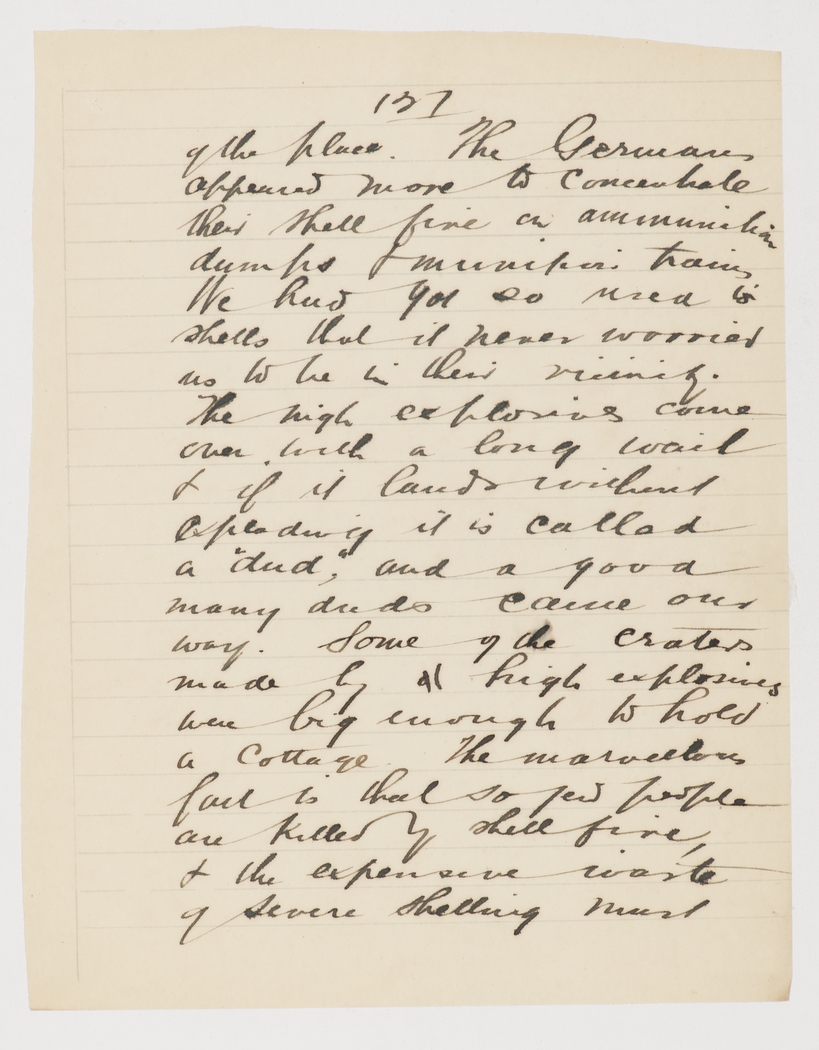 137
of the place. The Germans
appeared more to concentrate
their shell fire on ammunition
dumps & munition trains
We had got so used to
shells that it never worried
us to be in their vicinity.
The high explosives come
over with a long wail
& if it lands without
exploding it is called
a "dud", and a good
many duds came our
way. Some of the craters
made by high explosives
were big enough to hold
a cottage. The marvellous
fact is that so few people
are killed by shell fire,
& the expensive waste
of severe shelling must